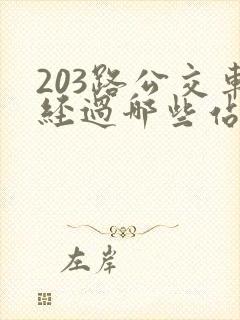 203路公交車
經過哪些站
左岸